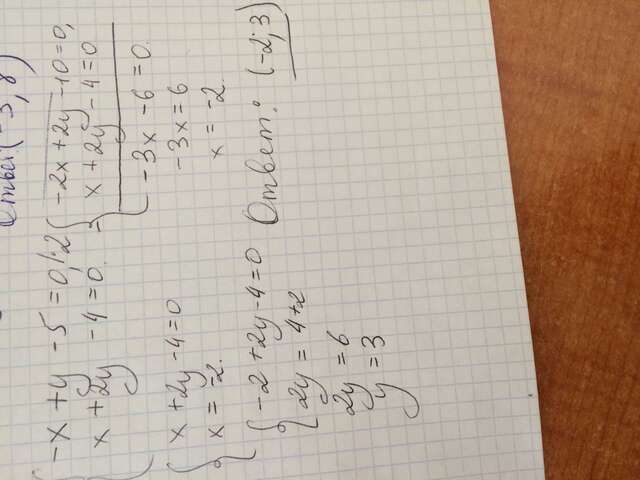 Ответ(-3; 8)
{ -x + y - 5 = 0, | ·2
x + 2y - 4 = 0.
- { -2x + 2y - 10 = 0,
x + 2y - 4 = 0
{ -3x - 6 = 0.
-3x = 6
x = -2.
{ x + 2y - 4 = 0
x = -2.
{ -2 + 2y - 4 = 0
2y = 4 + 2
2y = 6
y = 3
Ответ: (-2; 3)